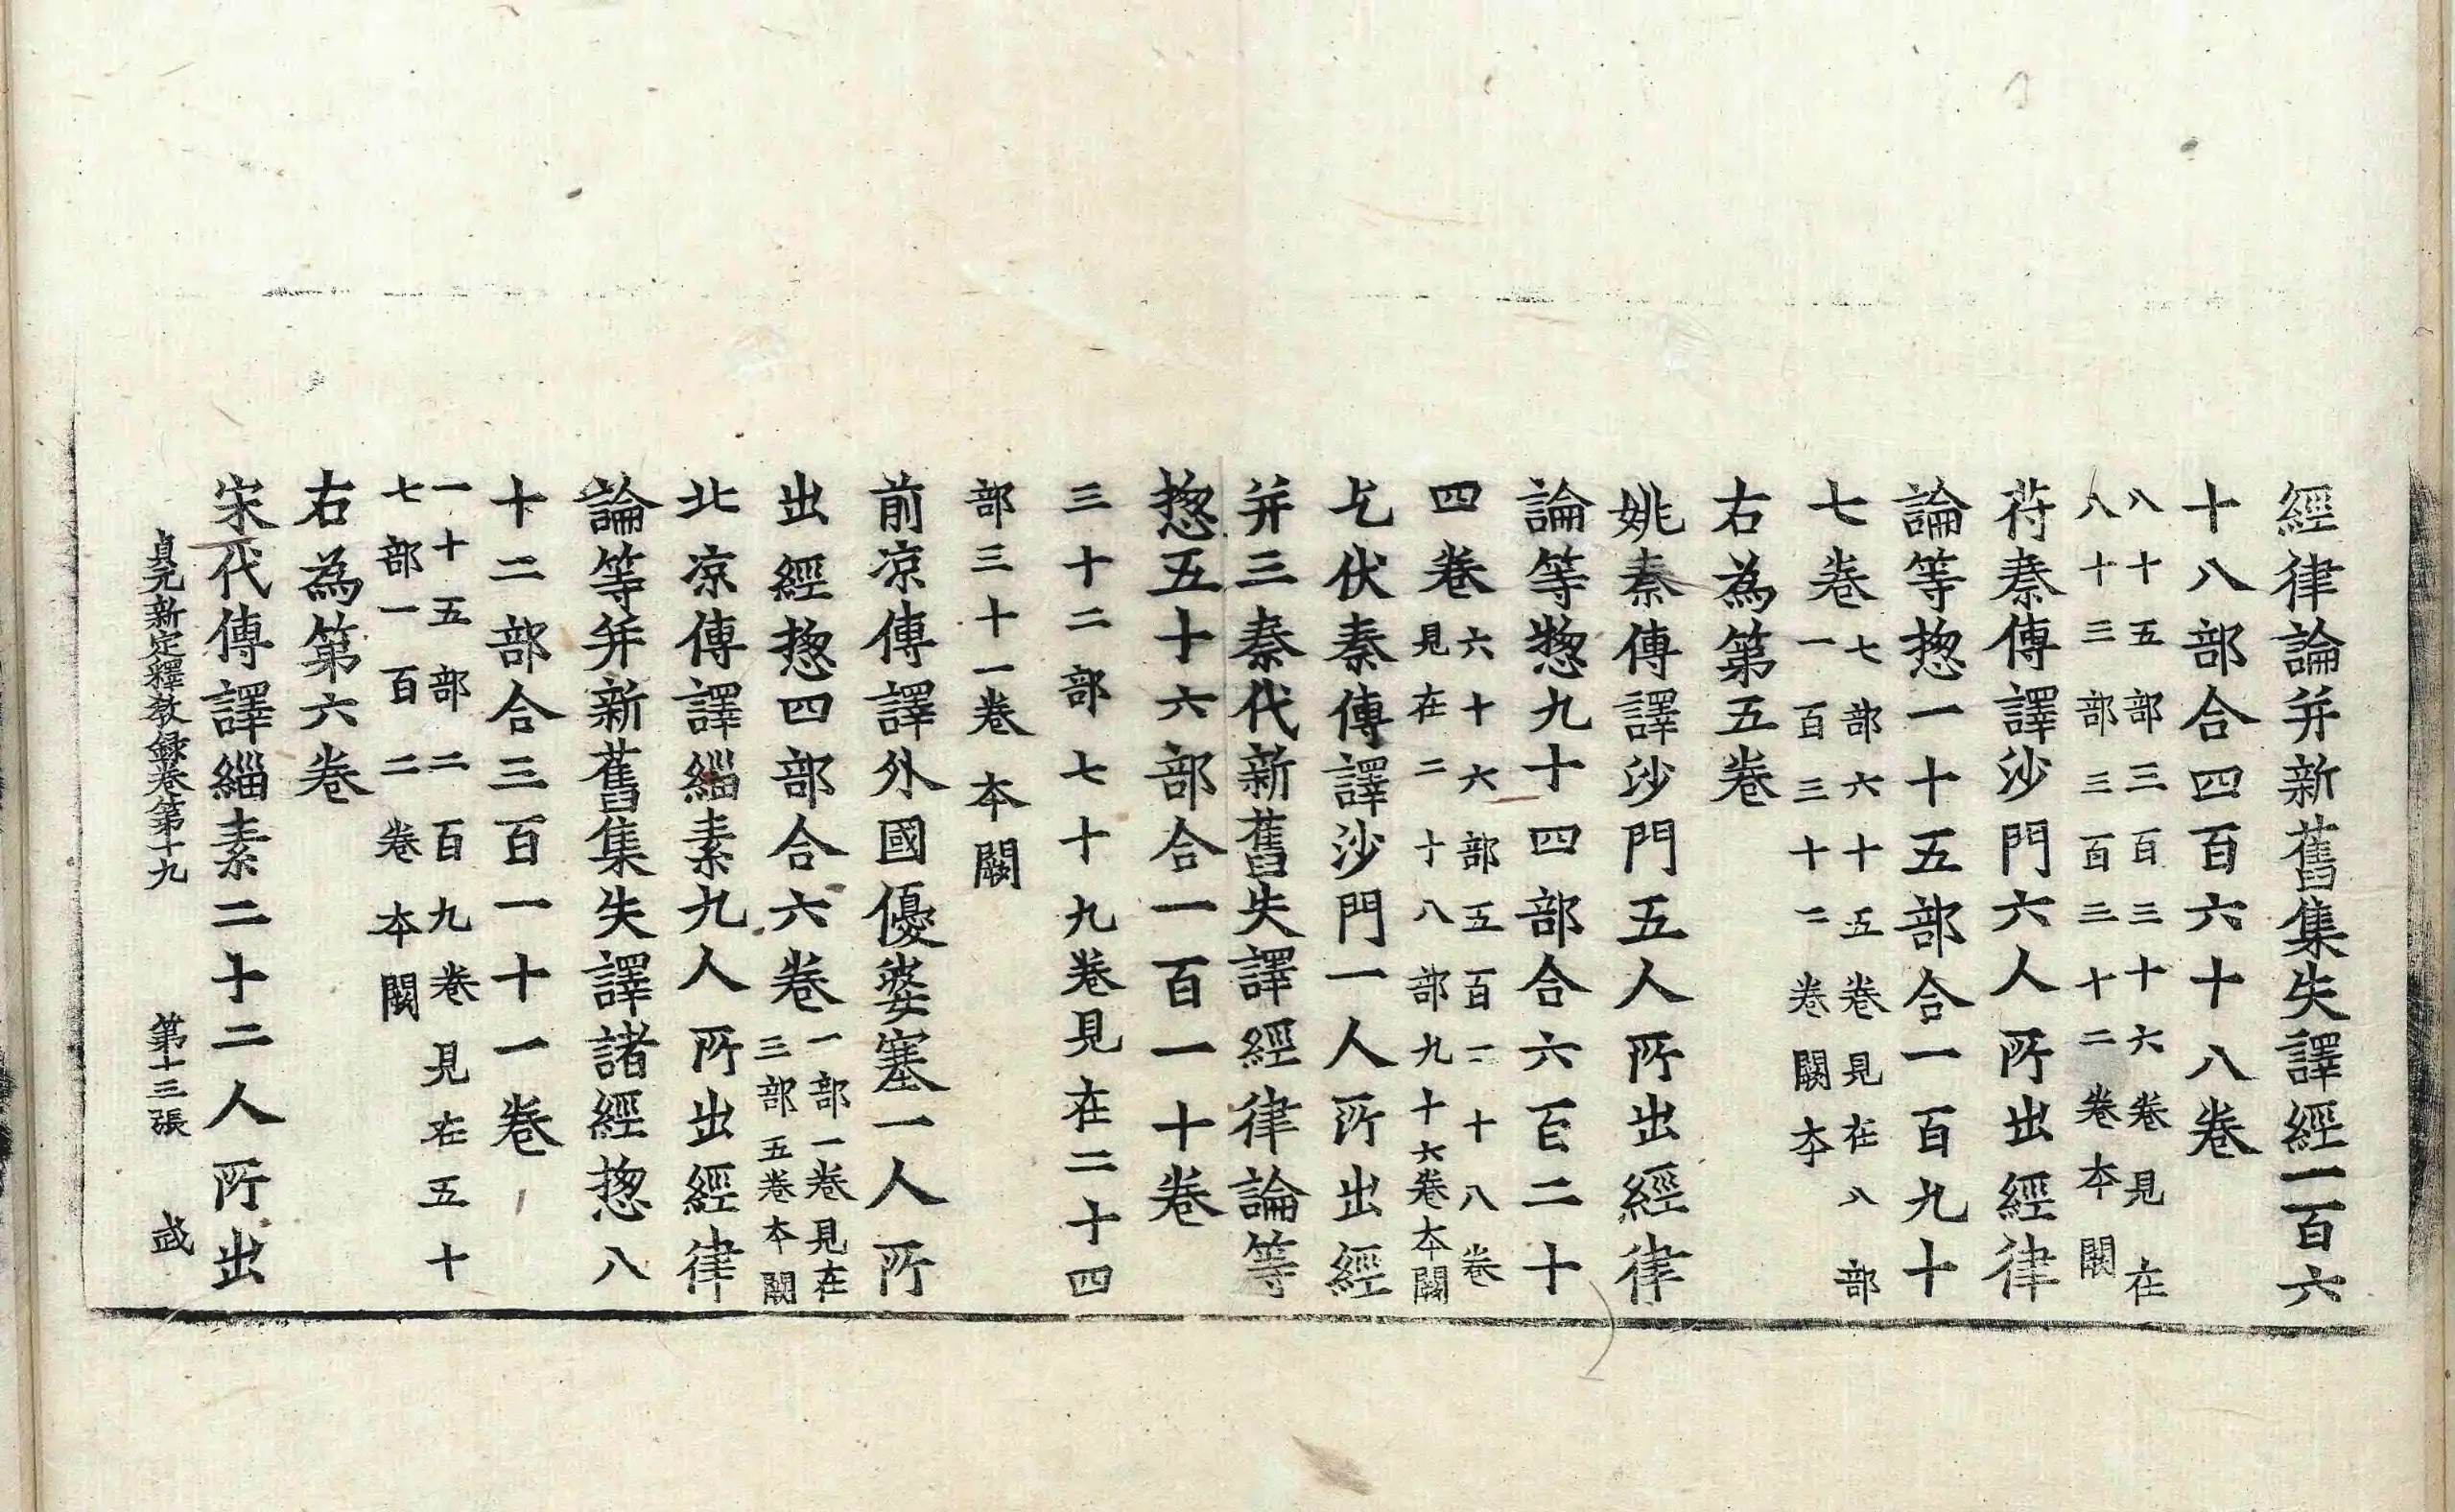 經律論并新舊集失譯經一百六
十八部合四百六十八卷
八十五部三百三十六卷見在
八十三部三百三十二卷本闕
苻秦傳譯沙門六人所出經律
論等揔一十五部合一百九十
七卷
七部六十五卷見在八部
一百三十二卷闕本
右為第五卷
姚秦傳譯沙門五人所出經律
論等揔九十四部合六百二十
四卷
六十六部五百二十八卷
見在二十八部九十六卷本闕
乞伏秦傳譯沙門一人所出經
并三秦代新舊失譯經律論等
揔五十六部合一百一十卷
三十二部七十九卷見在二十四
部三十一卷本闕
前凉傳譯外國優婆塞一人所
出經揔四部合六卷
一部一卷見在
三部五卷本闕
北凉傳譯緇素九人所出經律
論等并新舊集失譯諸經揔八
十二部合三百一十一卷
二十五部二百九卷見在五十
七部一百二卷本闕
右為第六卷
宋代傳譯緇素二十二人所出
貞元新定釋教錄卷第十九 第十三張 武